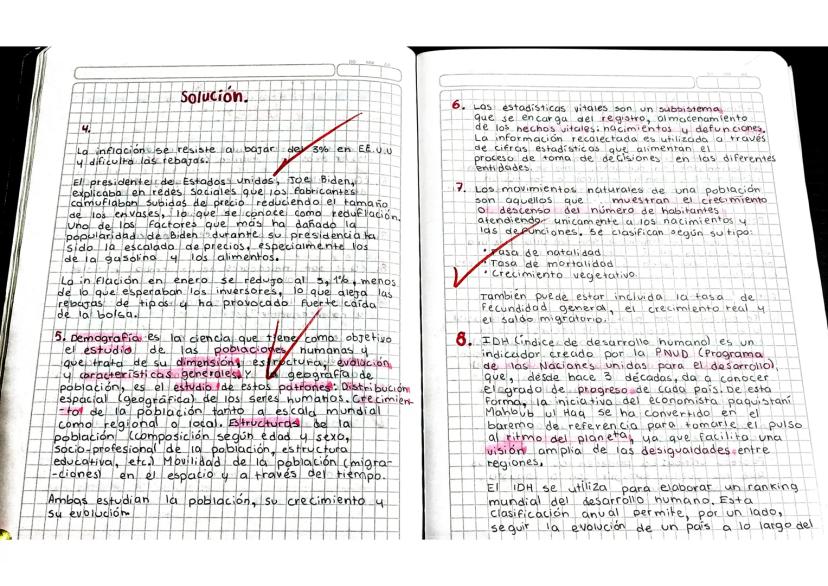 Solución.
4.
La inflación se resiste a bajar del 3% en EE.UU
y dificulta las rebajas.
El presidente de Estados unidos, Joe Biden,
explicaba en redes sociales que los fabricantes
camuflaban subidas de precio reduciendo el tamaño
de los envases, lo que se conoce como reduflación.
Uno de los factores que más ha dañado la
popularidad de Biden durante su presidencia ha
sido la escalada de precios, especialmente los
de la gasolina y los alimentos.
La inflación en enero se redujo al 3,1%, menos
de lo que esperaban los inversores, lo que aleja las
rebajas de tipos y ha provocado fuerte caída
de la bolsa.
5. Demografía es la ciencia que tiene como objetivo
el estudio de las poblaciones humanas y
que trata de su dimensión, estructura, evolución
y características generales y la geografía de
población, es el estudio de estos patrones. Distribución
espacial (geográfica) de los seres humanos. Crecimien-
-to) de la población tanto a escala mundial
como regional o local. Estructuras de la
población (composición según edad y sexo,
socio-profesional de la población, estructura
educativa, etc.) Movilidad de la población (migra-
-ciones) en el espacio y a través del tiempo.
Ambas estudian la población, su crecimiento y
su evolución
6. Las estadísticas vitales son un subsistema
que se encarga del registro, almacenamiento
de los hechos vitales: nacimientos y defunciones.
La información recolectada es utilizada a través
de cifras estadísticas que alimentan el
proceso de toma de decisiones en las diferentes
entidades.
7. Los movimientos naturales de una población
son aquellos que muestran el crecimiento
o descenso del número de habitantes
atendiendo unicamente a los nacimientos y
las defunciones. Se clasifican según su tipo:
• Tasa de natalidad
• Tasa de mortalidad
• Crecimiento vegetativo
También puede estar incluida la tasa de
Fecundidad general, el crecimiento real y
el saldo migratorio.
8. IDH (índice de desarrollo humano) es un
indicador creado por la PNUD (Programa
de las Naciones unidas para el desarrollo),
que, desde hace 3 décadas, da a conocer
el grado de progreso de cada país. De esta
forma, la iniciativa del economista paquistaní
Mahbub ul Haq se ha convertido en el
baremo de referencia para tomarle el pulso
al ritmo del planeta, ya que facilita una
visión amplia de las desigualdades entre
regiones.
El IDH se utiliza para elaborar un ranking
mundial del desarrollo humano. Esta
clasificación anual permite, por un lado,
seguir la evolución de un país a lo largo del